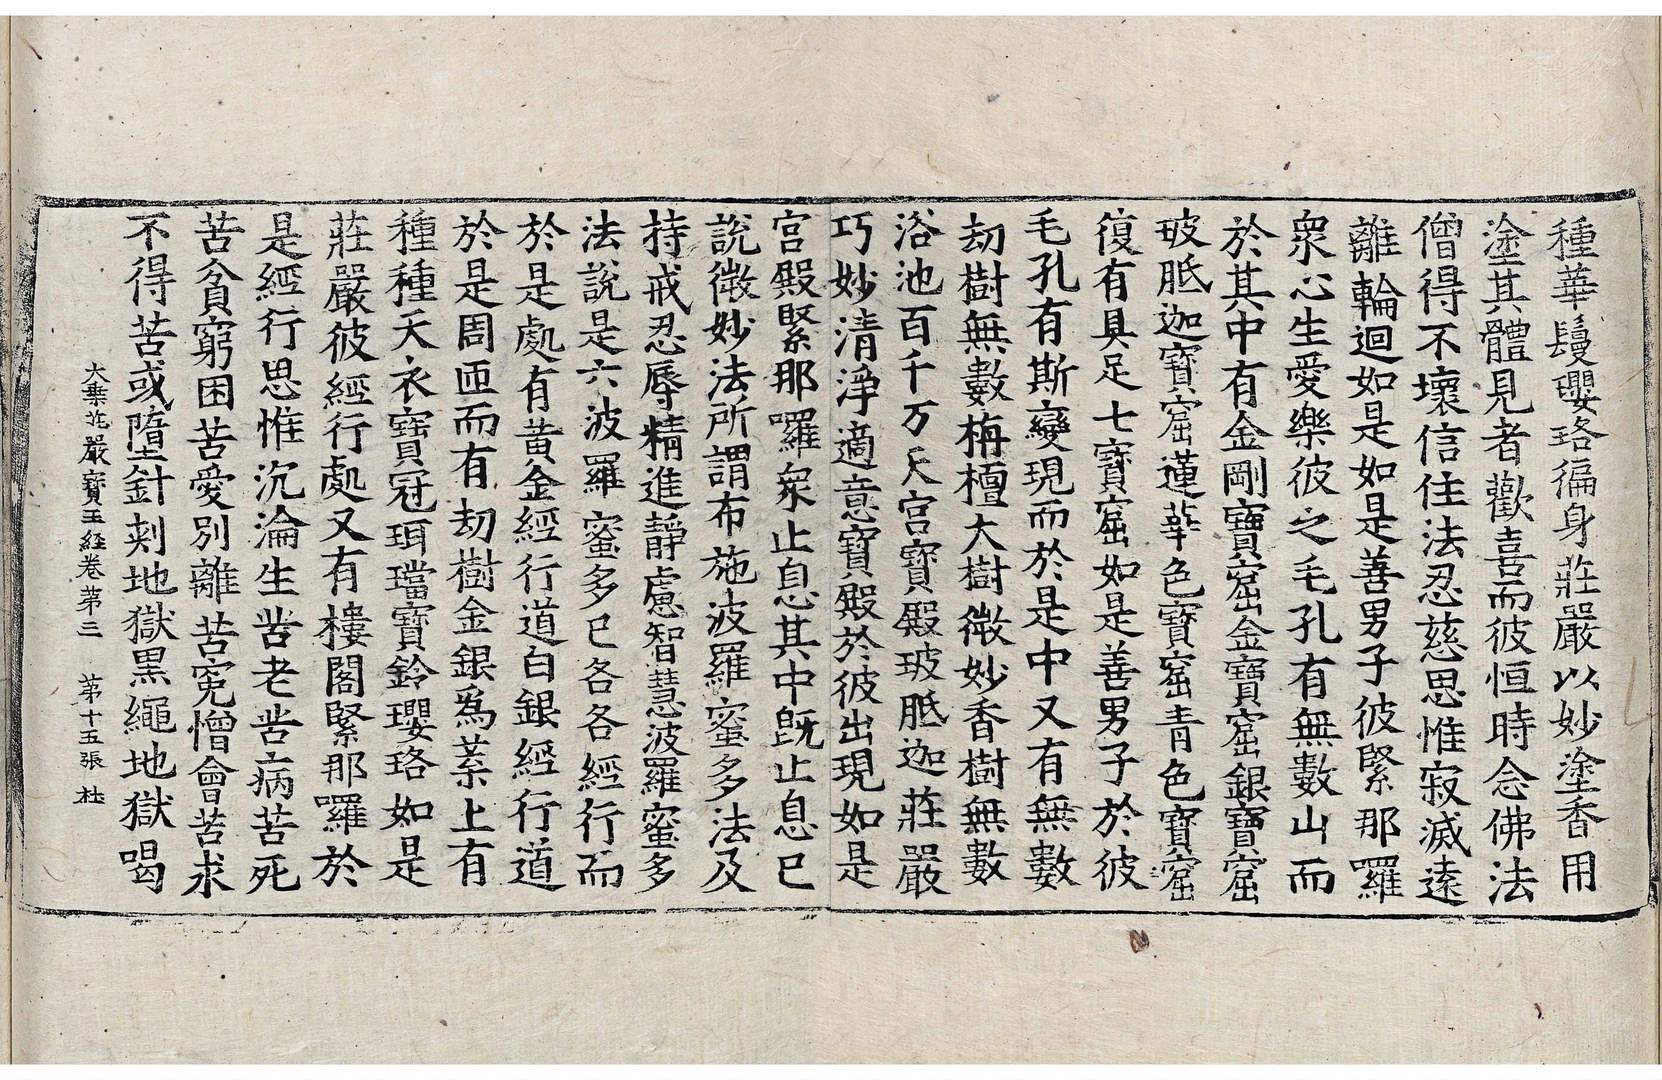 種華鬘瓔珞徧身莊嚴以妙塗香用
塗其體見者歡喜而彼恒時念佛法
僧得不壞信住法忍慈思惟寂滅遠
離輪迴如是如是善男子彼緊那羅
衆心生愛樂彼之毛孔有無數山而
於其中有金剛寶窟金寶窟銀寶窟
玻胝迦寶窟蓮華色寶窟青色寶窟
復有具足七寶窟如是善男子於彼
毛孔有斯變現而於是中又有無數
劫樹無數栴檀大樹微妙香樹無數
浴池百千万天宮寶殿玻胝迦莊嚴
巧妙清淨適意寶殿於彼出現如是
宮殿緊那囉衆止息其中旣止息已
說微妙法所謂布施波羅蜜多法及
持戒忍辱精進靜慮智慧波羅蜜多
法說是六波羅蜜多已各各經行而
於是處有黃金經行道白銀經行道
於是周匝而有劫樹金銀爲葉上有
種種天衣寶冠珥璫寶鈴瓔珞如是
莊嚴彼經行處又有樓閣緊那囉於
是經行思惟沉淪生苦老苦病苦死
苦貧窮困苦愛別離苦寃憎會苦求
不得苦或墮針刺地獄黑繩地獄喝
大乗莊嚴寶王經卷第三 第十五張 杜